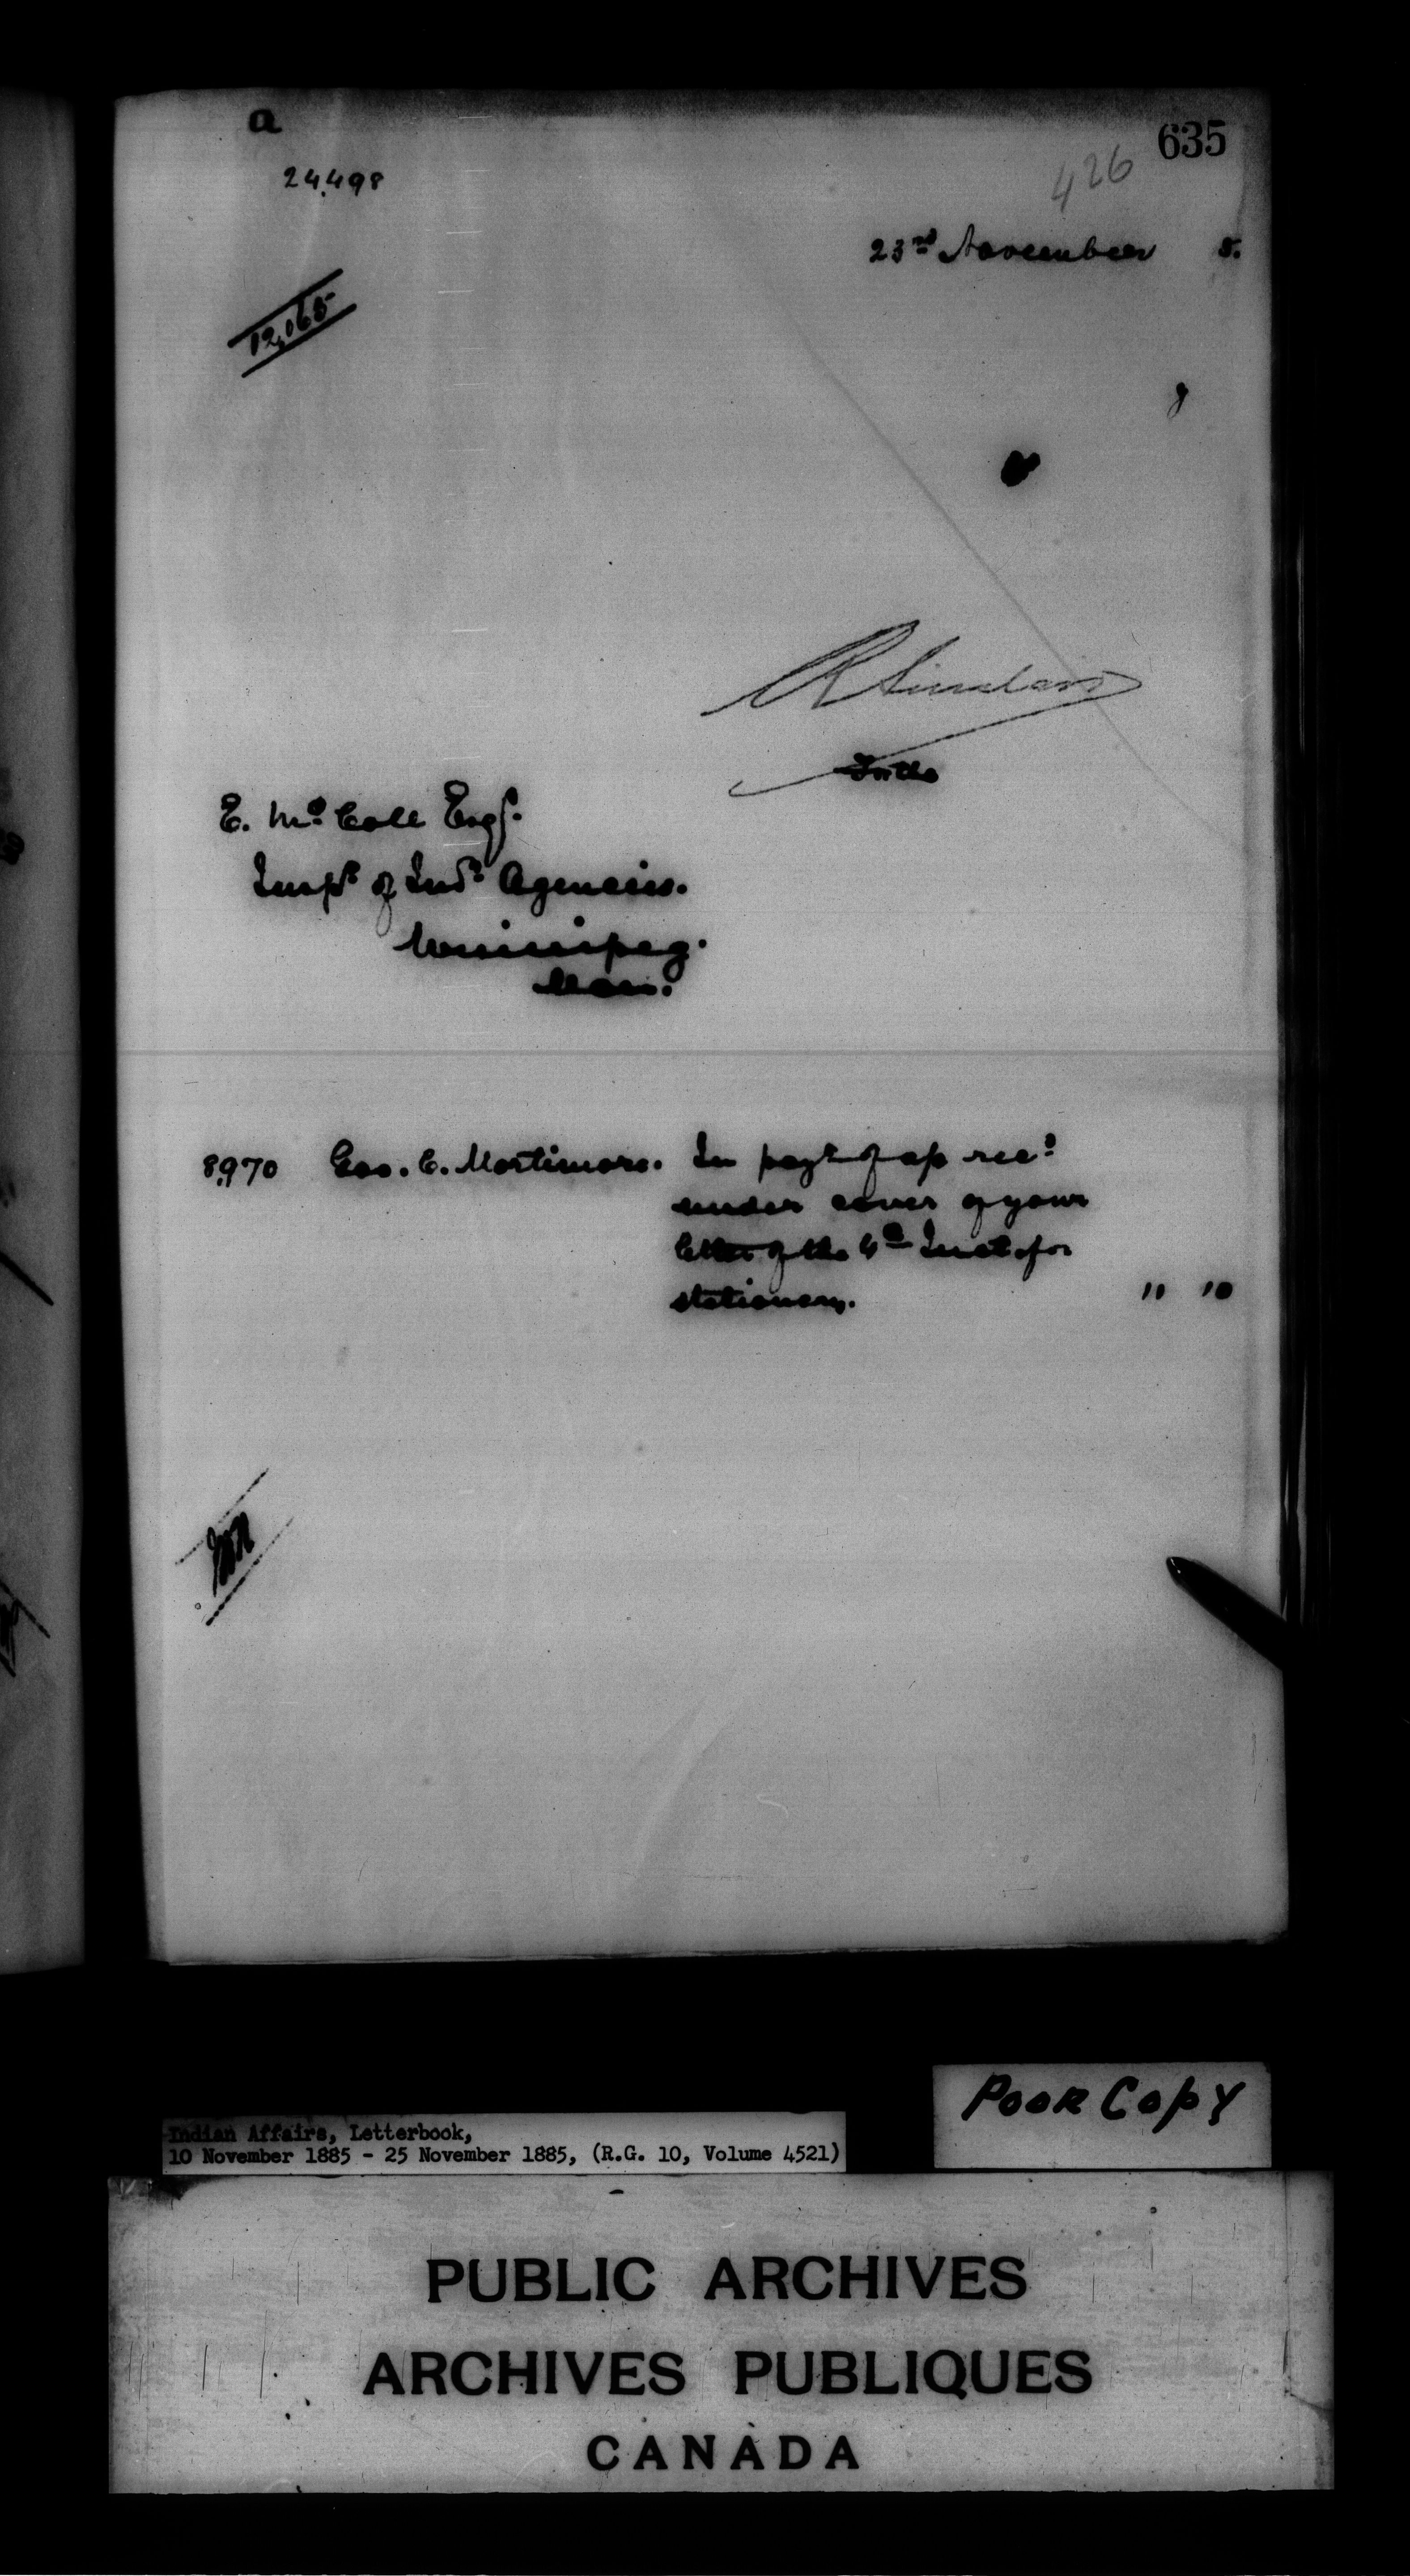 a
635
24,498
426
23rd November 5.
12,065
R Sinclair
For the
E. McColl Esqr.
Inspr. of Indn. Agencies.
Winnipeg.
Man.
8,970 Geo. E. Mortimore. In payt of a/c recd.
under cover of your
letter of the 4th Inst. for
stationery. " 10
Indian Affairs, Letterbook,
10 November 1885 - 25 November 1885, (R.G. 10, Volume 4521)
POOR COPY
PUBLIC ARCHIVES
ARCHIVES PUBLIQUES
CANADA